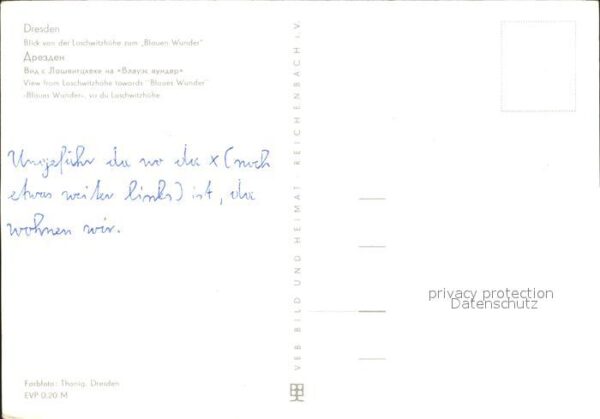 Dresden
Blick von der Loschwitzhöhe zum „Blauen Wunder"
Дрезден
View from Loschwitzhöhe towards "Blaues Wunder"
«Blaues Wunder», vu du Loschwitzhöhe
Ungefähr da wo das x (noch
etwas weiter links) ist, da
wohnen wir.
VEB BILD UND HEIMAT · REICHENBACH i. V.
privacy protection
Datenschutz
Farbfoto: Thonig, Dresden
EVP 0,20 M